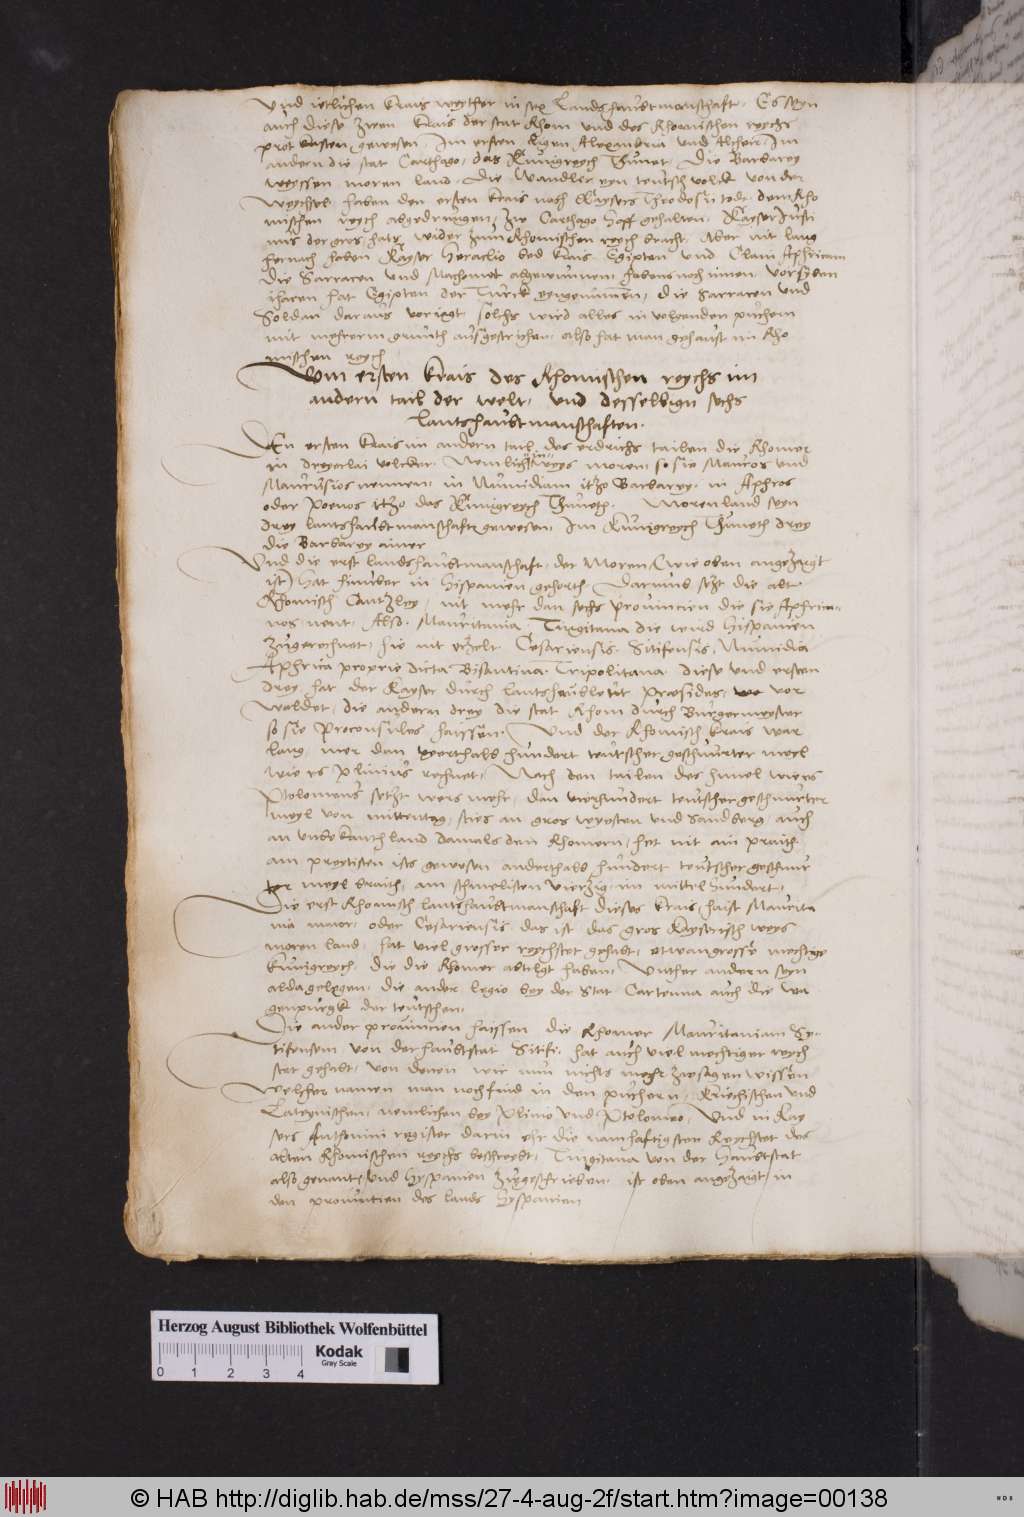 Vnd ietlichen krais weyther in sex Landshaubtmanschafft. Es seyn
auch diese zwen krais der stat Rhom vnd des Rhomischen reychs
prot kasten gewesen, Im ersten ligen Alexandria vnd Alcheir, Im
andern die stat Carthago, das Künigreych Thunet, Die Barbarey
weyssen moren land, Die Wandler eyn teutsch volck von der
Weychsel haben den ersten krais nach Kaysers Theodosii todt dem Rho
mischen reych abgedrungen, zw Carthago Hoff gehalten. Kayser Justi
nus der gros hats wider zum Rhomischen reych bracht, Aber nit lang
hernach haben Kayser Heraclio bed krais Egipten vnd Clain Aphricam
die Sarracen vnd Machomet abgewunnen habens noch innen. Vor syben
iharen hat Egipten der Türck eyngenummen, die Sarracen vnd
Soldan daraus veriagt, solchs wird alles in volgenden püchern
mit mehrerm grunth ausgestrichen, also hat man gehaust im Rho
mischen reych
Vom ersten krais des Rhomischen reychs im
andern tail der welt, vnd desselbign sechs
Lantshaubtmanschafften.
Den ersten krais im andern tail des erdrichs tailen die Rhomer
in dreyerlai volcker. Nemlich in weys moren so sie Mauros vnd
Maurusios nennen, in Numidiam itzo Barbarey, in Aphros
oder Poenos itzo das Künigreych Thuneth. Morenland seyn
drey lantshaubtmanschafft gewesen, Im Künigreych Thuneth drey
die Barbarey ainer
Vnd die erst landshaubtmanschafft, der Moren (wie oben angezaigt
ist) hat hinüber in Hispanien gehorth. Darumb setzt die alt
Rhomisch Cantzley, nit mehr dan sechs prouincien die sie Aphrica
nos nent, Also. Mauritania Tingitana die wurd Hispanien
zugerechnet, hie nit erzelt Cesariensis Sitifensis, Numidia
Aphrica proprie dicta Bisantina Tripolitana diese vnd ersten
drey hat der Kayser durch lantshaubleut Præsides, vor
weldet, die andern drey die stat Rhom durch Burgermeyster
so sie Proconsules haissen. Vnd der Rhomisch krais war
lang, mer dan hundert teutscher geschnürter meyl
wie es Plinius rechnet, Nach den tailen des himel wie es
Ptolomeus setzt wers mehr, dan vierhundert teutscher geschnürter
meyl von mittentag, sties an gros wuesten vnd sandberg, auch
an vnbekanth land damals den Rhomern, het nit ain praith
am preytisten ists gewesen anderthalb hundert teutscher geschnür
ter meyl braith, am schmelisten vierzig, im mittel hundert,
Die erst Rhomisch lantshaubtmanschafft dieses krais, haist Maurita
nia maior, oder Cesariensis das ist das gros Kayserisch weys
moren land, hat viel grosser reychstet gehabt, etwan grosse mechtige
künigreych, die die Rhomer abtilgt haben, Vnther andern seyn
alda gelegen, die ander legio bey der Stat Cartenna auch die wa
genpurgk der teutschen,
Die ander prouincien haissen die Rhomer Mauritaniam Sy-
tifensem, von der haubtstat Sitifi, hat auch viel mechtiger reych
stet gehabt, von denen wir nun nichts mehr zw sagen wissen
Welcher namen man noch find in den püchern, Kriechischen vnd
Lateynischen, nemlichen bey Plinio vnd Ptolomeo, Vnd in Kay
sers Anthonini register darin ehr die namhafftigsten Reychstet des
alten Rhomischen reychs beschreybt, Tingitana von der Haubtstat
also genant, vnd Hyspanien zugeschrieben, ist oben angezaigt, in
den prouincien des lands Hyspanien
Herzog August Bibliothek Wolfenbüttel
Kodak
Gray Scale
0 1 2 3 4
© HAB http://diglib.hab.de/mss/27-4-aug-2f/start.htm?image=00138